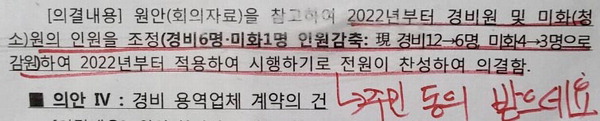 [의결내용] 원안(회의자료)을 참고하여 2022년부터 경비원 및 미화(청
소)원의 인원을 조정(경비6명·미화1명 인원감축: 現 경비12→6명 미화4→3명으로
감원)하여 2022년부터 적용하여 시행하기로 전원이 찬성하여 의결함.
■ 의안 Ⅳ : 경비 용역업체 계약의 건
→주민 동의 받으세요